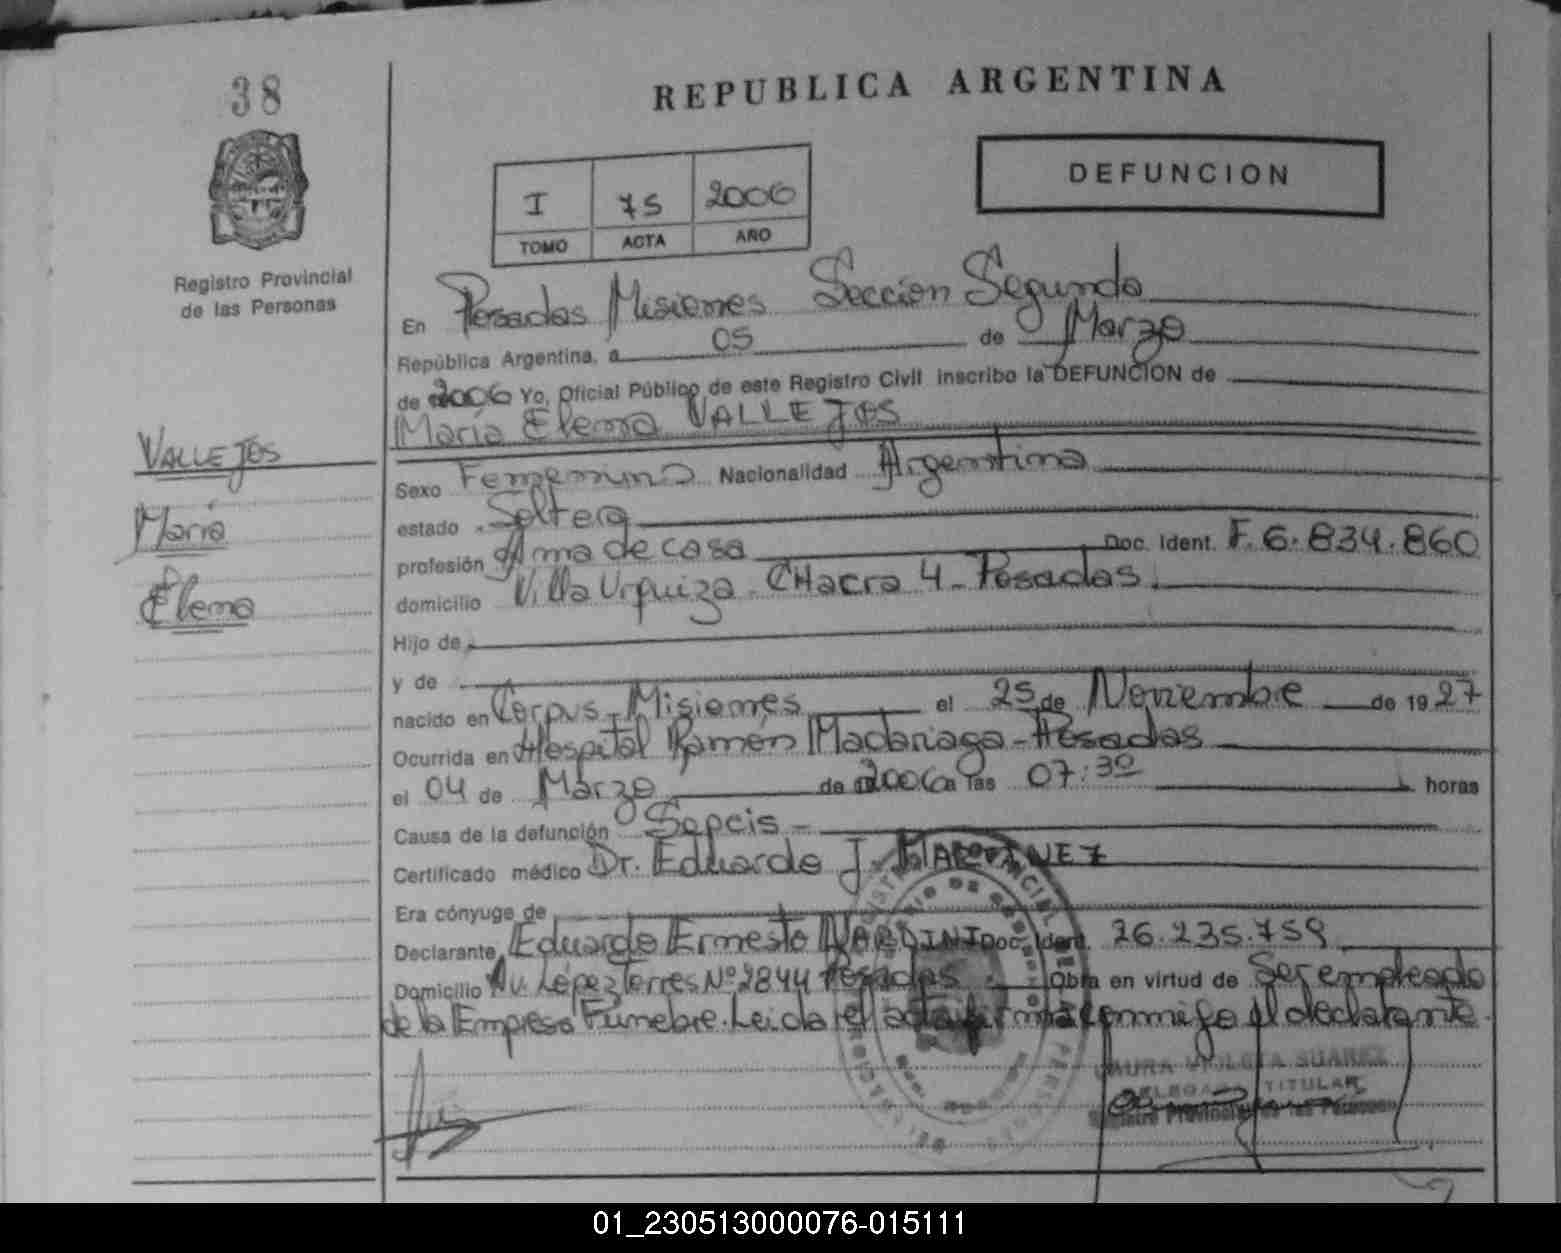 38
REPUBLICA ARGENTINA
I 75 2006
TOMO ACTA AÑO
DEFUNCION
Registro Provincial
de las Personas
En Posadas Misiones Sección Segunda
República Argentina, a 05 de Marzo
de 2006 Yo, Oficial Público de este Registro Civil inscribo la DEFUNCION de
María Elena VALLEJOS
VALLEJOS
María
Elena
Sexo Femenino Nacionalidad Argentina
estado Soltera
profesión Ama de casa Doc. Ident. F. 6.834.860
domicilio Villa Urquiza - CHacra 4 - Posadas.
Hijo de
y de
nacido en Corpus - Misiones el 25 de Noviembre de 1927
Ocurrida en Hospital Ramón Madariaga - Posadas
el 04 de Marzo de 2006 a las 07:30 horas
Causa de la defunción Sepcis -
Certificado médico Dr. Eduardo J. MARTINEZ
Era cónyuge de
Declarante Eduardo Ernesto NARDINI Doc. Ident. 26.235.759
Domicilio Av. López Torres Nº 2844 Posadas Obra en virtud de Ser empleado
de la Empresa Funebre. Leida el acta firma conmigo el declarante.
LAURA VIOLETA SUAREZ
DELEGADA TITULAR
Registro Provincial de las Personas
01_230513000076-015111